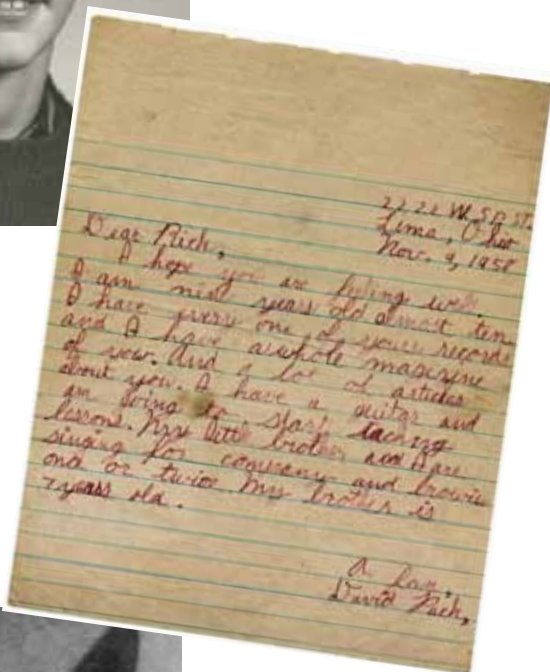 2222 W. SP. ST.
Lima, Ohio
Nov. 9, 1958
Dear Rich,
I hope you are feling well.
I am nine years old almost ten
I have every one of your records
and I have awhole magazine
of you. And a lot of articles
about you. I have a guitar and
am going to start taching
lessons. My little brother and I are
singing for company and
one or twice. My brother is
7 years old.
A fan,
David